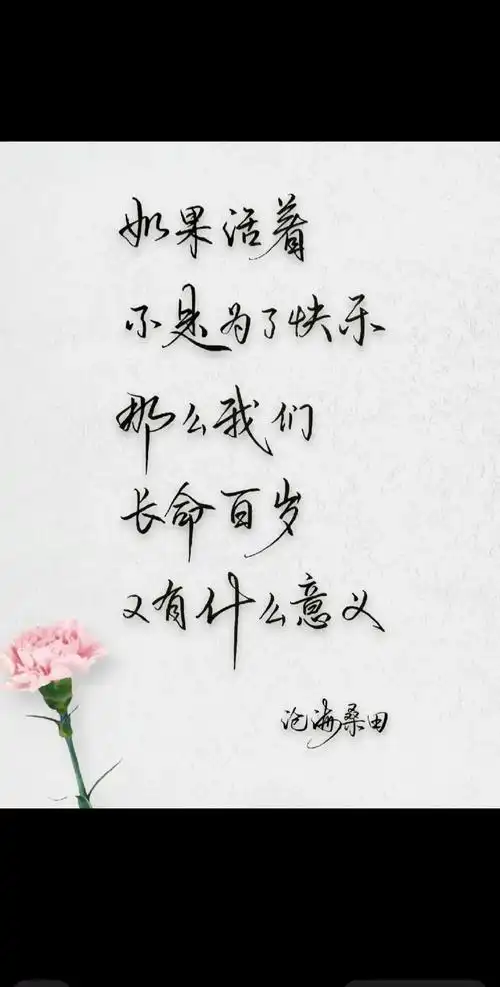 如果活着
不是为了快乐
那么我们
长命百岁
又有什么意义
沧海桑田